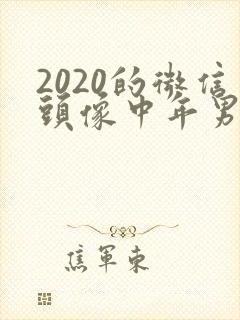 2020的微信
頭像中年男
焦軍東